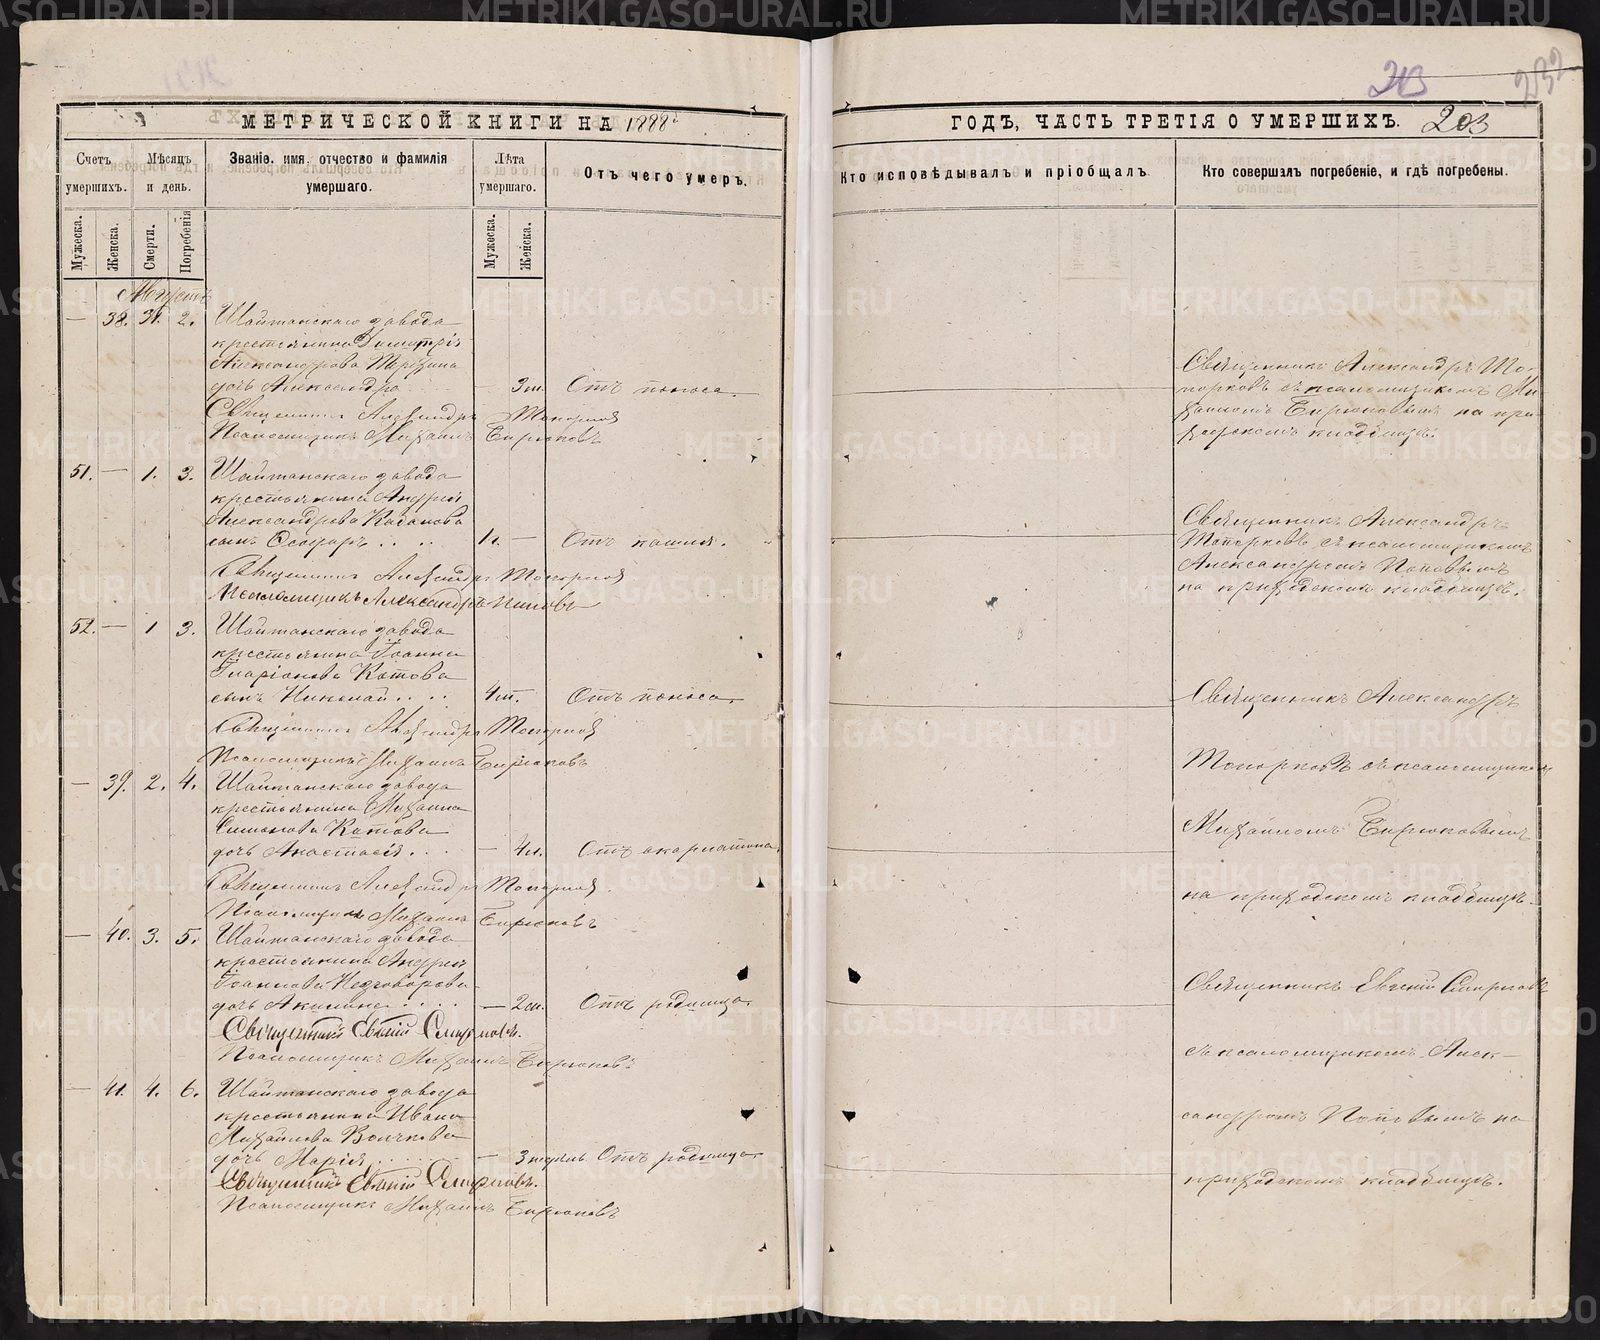 МЕТРИЧЕСКОЙ КНИГИ НА 1888
Счетъ умершихъ.
Мѣсяцъ и день.
Званіе, имя, отчество и фамилія умершаго.
Лѣта умершаго.
Отъ чего умеръ.
Мужеска.
Женска.
Смерти.
Погребенія
Мужеска.
Женска.
Августъ
— 38. 31. 2. Шайтанскаго завода
крестьянина Димитрія
Александрова
дочь Александра — 3 м. Отъ поноса.
Священникъ Александръ Топорковъ
Псаломщикъ Михаилъ Бирюковъ
51. — 1. 3. Шайтанскаго завода
крестьянина Андрея
Александрова Казакова
сынъ Ѳеодоръ 1 г. — Отъ кашля.
Священникъ Александръ Топорковъ
Псаломщикъ Александръ Поповъ
52. — 1 3. Шайтанскаго завода
крестьянина Іоанна
Иларіонова Котова
сынъ Николай 4 м. Отъ поноса.
Священникъ Александръ Топорковъ
Псаломщикъ Михаилъ Бирюковъ
— 39. 2. 4. Шайтанскаго завода
крестьянина Михаила
Симонова Котова
дочь Анастасія — 4 л. Отъ скарлатины.
Священникъ Александръ Топорковъ.
Псаломщикъ Михаилъ Бирюковъ
— 40. 3. 5. Шайтанскаго завода
крестьянина Андрея
Іоаннова
дочь Акилина — 2 м. Отъ родимца.
Священникъ Евгеній Смирновъ.
Псаломщикъ Михаилъ Бирюковъ
— 41. 4. 6. Шайтанскаго завода
крестьянина Ивана
Михайлова Волчкова
дочь Марія — 3 недѣль Отъ родимца.
Священникъ Евгеній Смирновъ.
Псаломщикъ Михаилъ Бирюковъ
213
232
ГОДЪ, ЧАСТЬ ТРЕТІЯ О УМЕРШИХЪ.
203
Кто исповѣдывалъ и пріобщалъ.
Кто совершалъ погребеніе, и гдѣ погребены.
Священникъ Александръ То-
порковъ съ псаломщикомъ Ми-
хаиломъ Бирюковымъ на при-
ходскомъ кладбищѣ.
Священникъ Александръ
Топорковъ съ псаломщикомъ
Александромъ Поповымъ
на приходскомъ кладбищѣ.
Священникъ Александръ
Топорковъ съ псаломщикомъ
Михаиломъ Бирюковымъ
на приходскомъ кладбищѣ.
Священникъ Евгеній Смирновъ
съ псаломщикомъ Алек-
сандромъ Поповымъ на
приходскомъ кладбищѣ.
METRIKI.GASO-URAL.RU